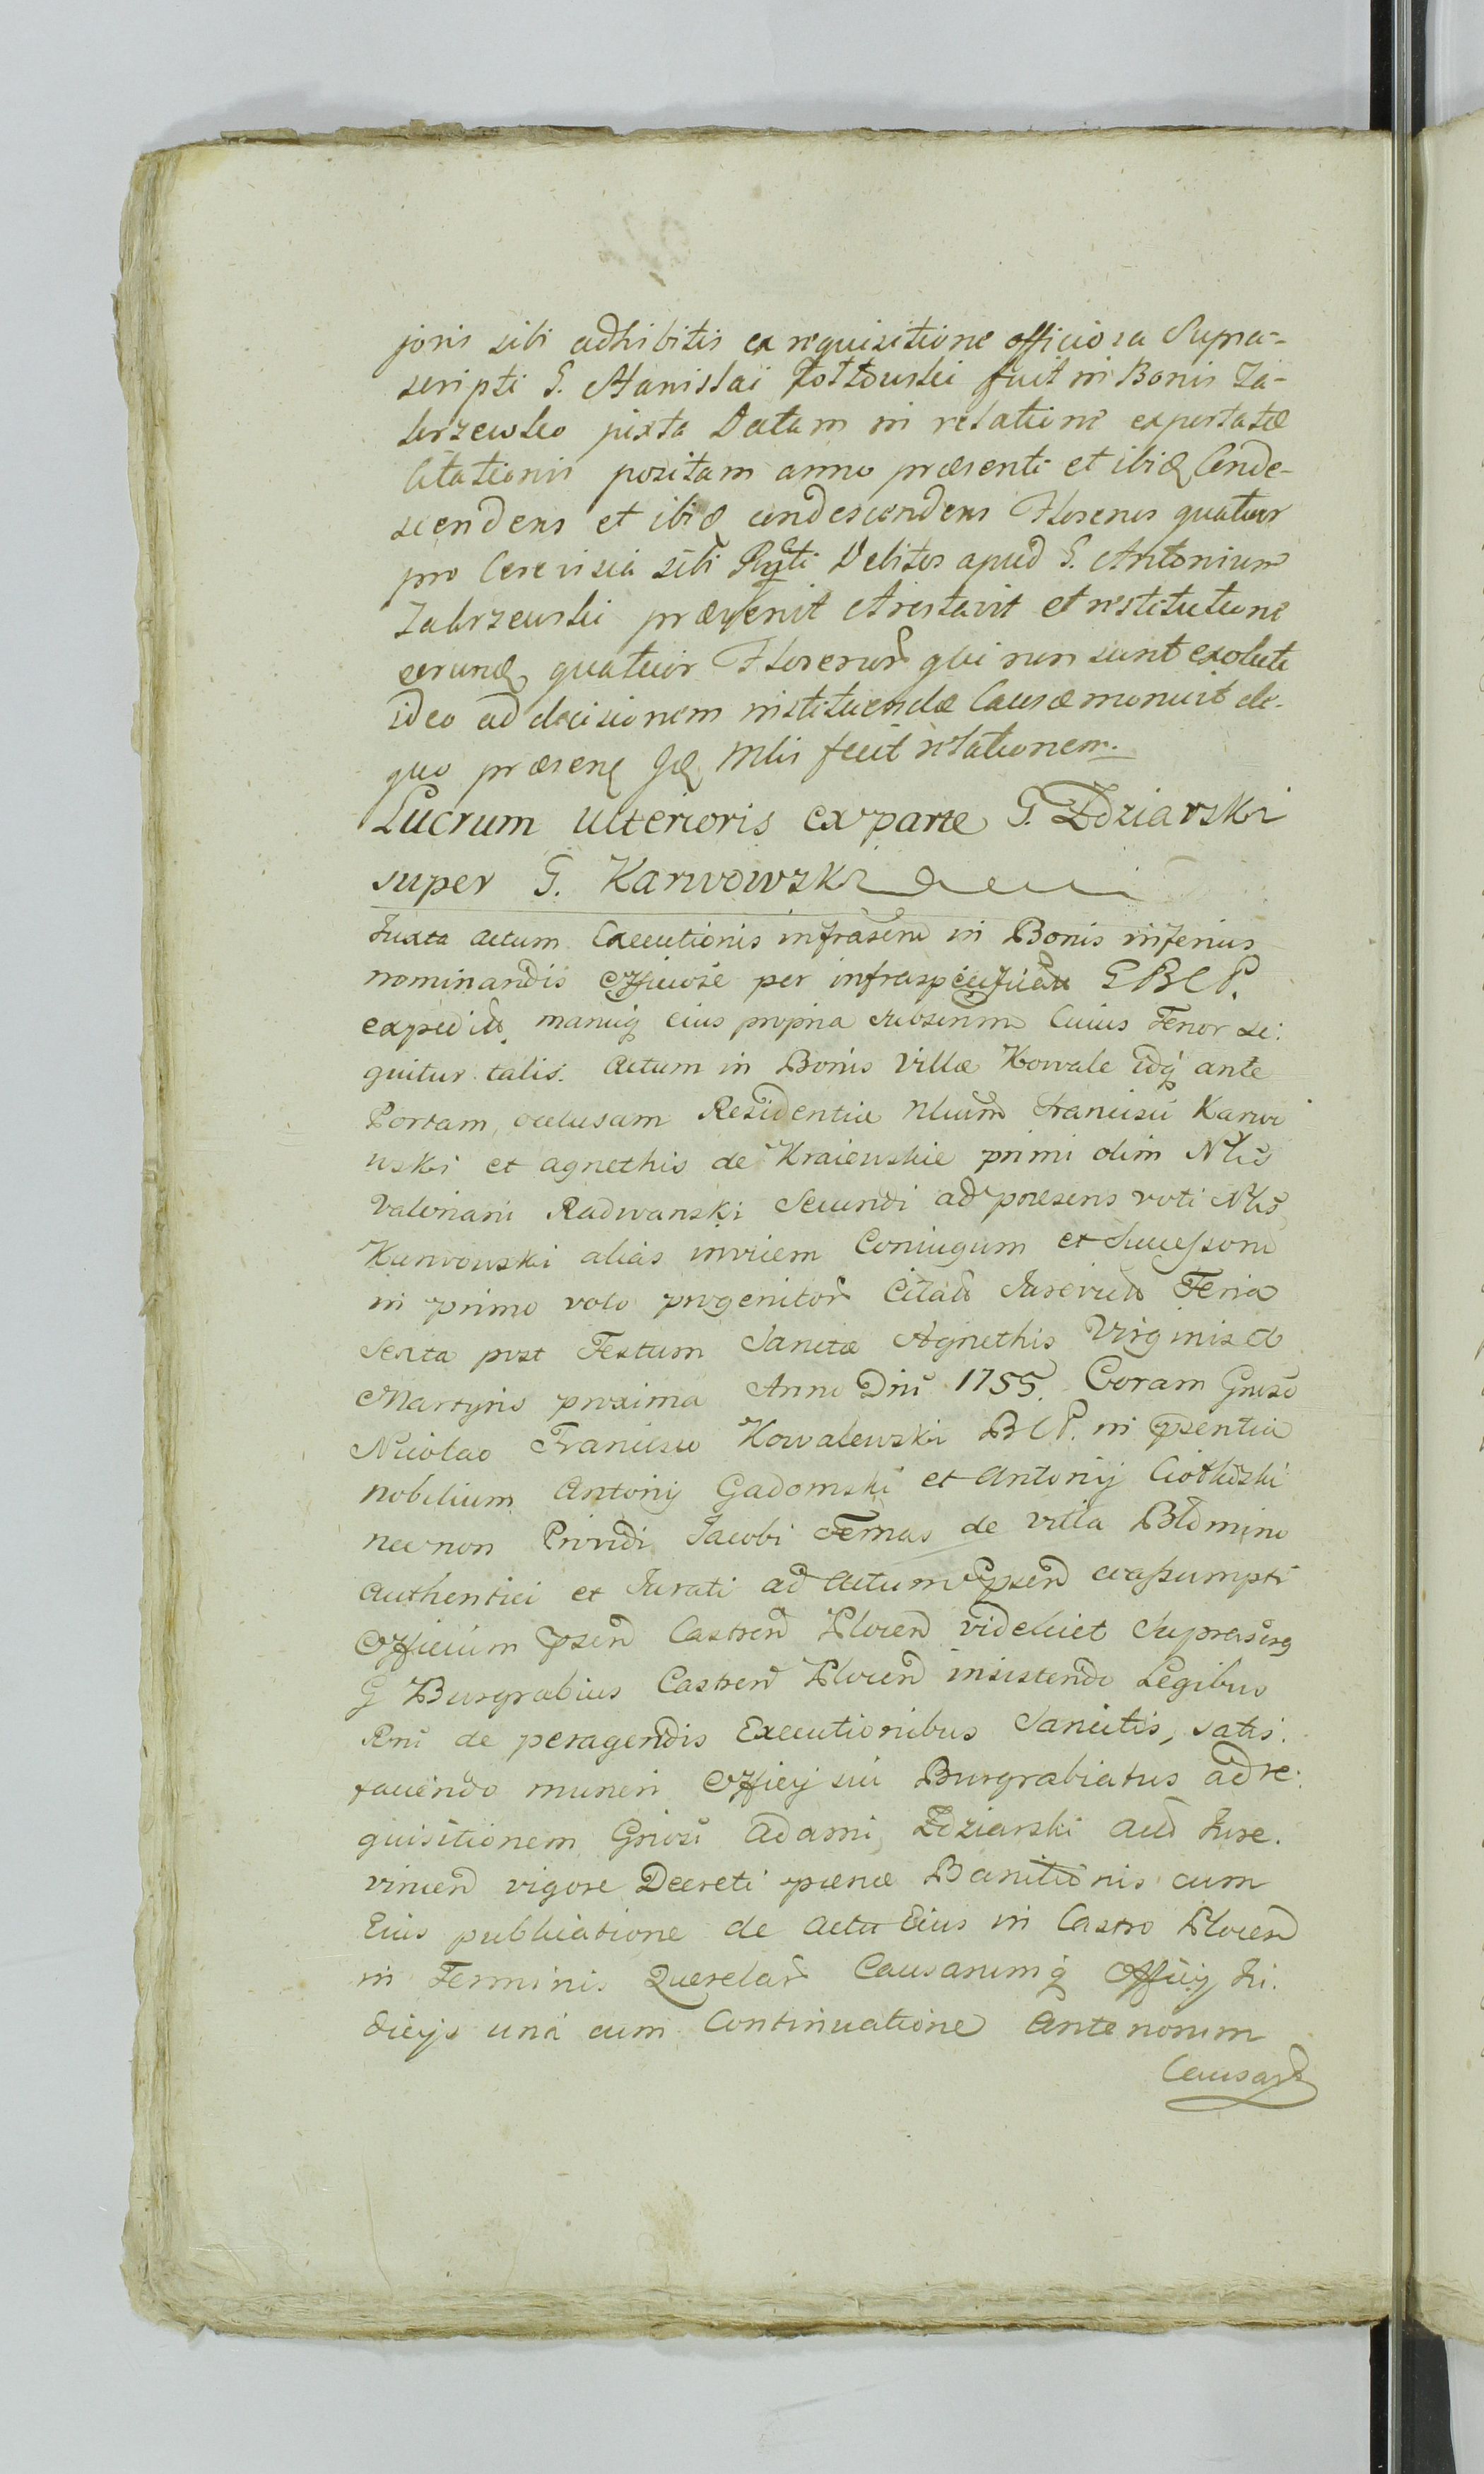 joris sibi adhibitis ex requisitione officiosa Supra=
scripti G. Stanislai fuit in Bonis Za-
brzewko juxta Datam in relatione exportatæ
Citationis positam anno præsenti et ibiq Conde-
scendens et ibiq condescendens Florenos quatuor
pro Cerevisia sibi Debitos apud G. Antonium
Zabrzewski prævenit Arestavit et restitutione
eorundq quatuor Florenor qui non sunt exoluti
ideo ad decisionem instituendæ Causæ monuit de.
quo præsenq Mlis fecit relationem.
Lucrum ulterioris ex parte G. Zdziarski
super G. Karwowski
Juxta actum Executionis infrascrip in Bonis inferius
nominandis Officiose per infraspecificatu G B C P.
expedit manuq eius propria subscriptm Cuius Tenor se:
quitur talis. Actum in Bonis Villæ Kowale idq ante
Portam occlusam Residentiæ Nlium Francisci Karwo
wski et Agnethis de Kraiewskie primi olim Nlis
Valeriani Radwanski Secundi ad præsens voti Nlis
Karwowski alias invicem Coniugum et Successoru
in primo voto progenitor Citato Feria
Sexta post Festum Sanctæ Agnethis Virginis et
Martyris proxima Anno Dni 1755. Coram Gnroso
Nicolao Francisco Kowalewski B C P. in psentia
Nobilium Antonij Gadomski et Antonij
necnon Providi Jacobi Temas de villa
Authentici et Jurati ad Actum psend assumpti
Officium psend Castren Plocen videlicet Suprascrip
G Burgrabius Castren Plocen insistendo Legibus
Rni de peragendis Executionibus Sancitis, satis:
faciendo muneri Officij sui Burgrabiatus ad re:
quisitionem Gnrosi Adami Zdziarski Jure.
vincen vigore Decreti pænæ Banitionis cum
Eius publicatione de actu Eius in Castro Plocen
in Terminis Querelar Causarumq Officij Ju:
dicijs una cum Continuatione Antenorum
Causar